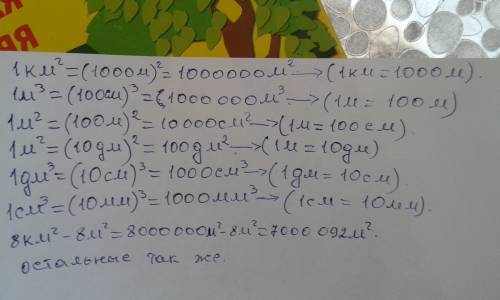 1км² = (1000м)² = 1000000м² → (1км = 1000м).
1м³ = (100см)³ = (1000 000м³ → (1м = 100м)
1м² = (100м)² = 10000см² → (1м = 100см)
1м² = (10дм)² = 100дм² → (1м = 10дм)
1дм³ = (10см)³ = 1000см³ → (1дм = 10см)
1см³ = (10мм)³ = 1000мм³ → (1см = 10мм).
8км² - 8м² = 8000000м² - 8м² = 7000 092м².
остальные так же.